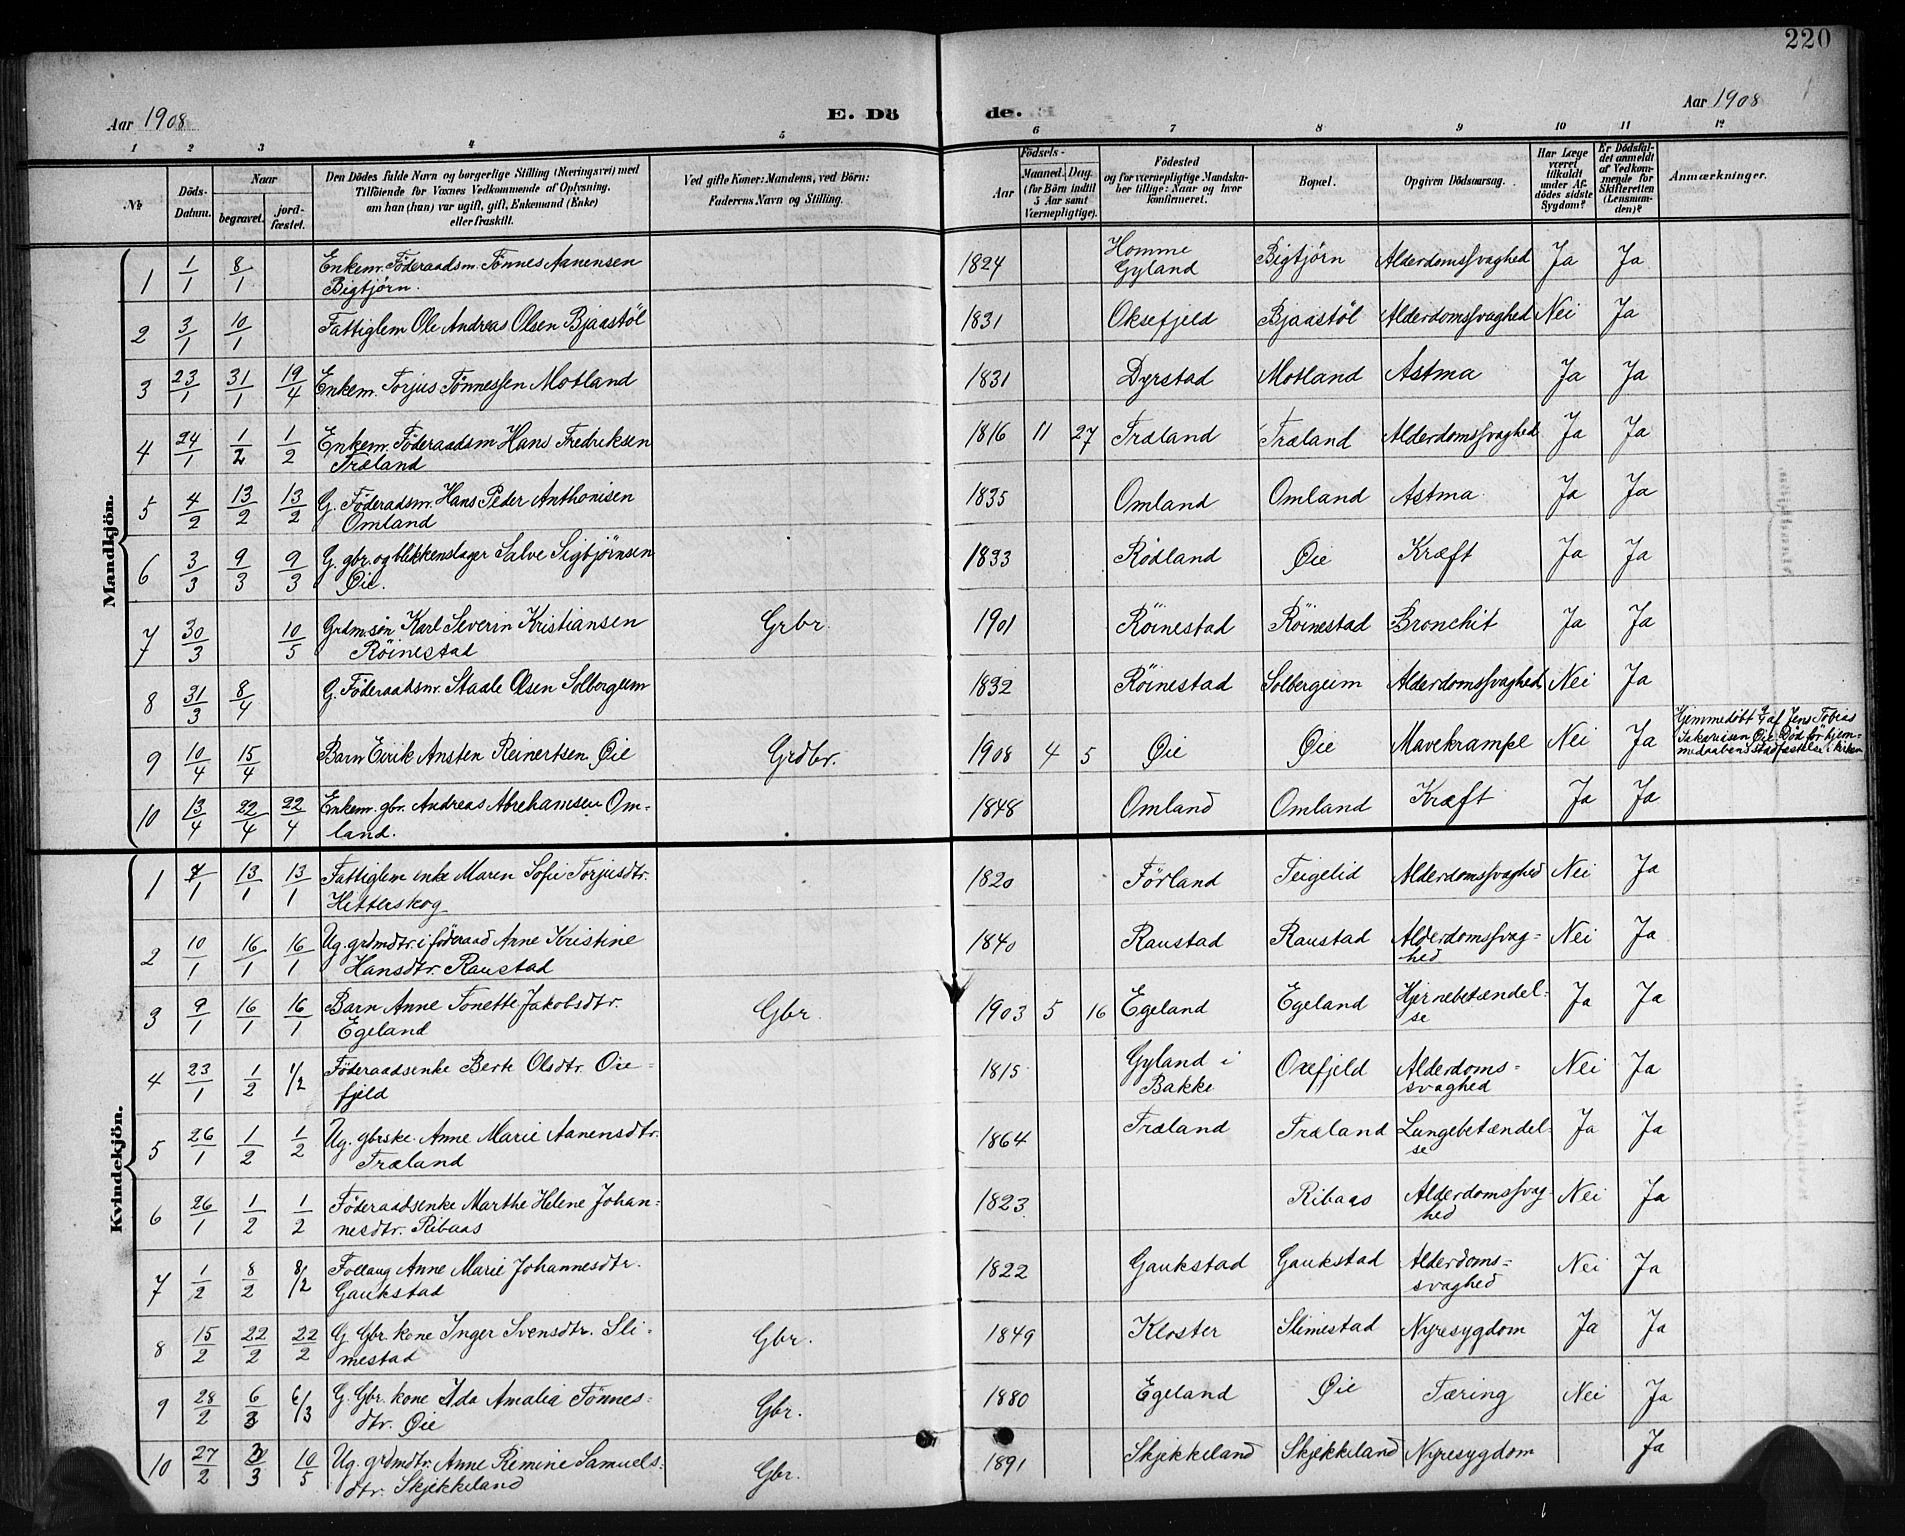 220
Aar 1908
E. Dö
de.
Aar 1908
1 2 3 4 5 6 7 8 9 10 11 12
No
Döds-Datum.
Naar
begravet.
jord-fæstet.
Den Dödes fulde Navn og borgerlige Stilling (Næringsvei) med
Tilföiende for Voxnes Vedkommende af Oplysning,
om han (hun) var ugift, gift, Enkemand (Enke)
eller fraskilt.
Ved gifte Koner: Mandens, ved Börn:
Faderens Navn og Stilling.
Födsels-
Aar
Maaned. Dag.
(for Börn indtil
5 Aar samt
Værnepligtige).
Födested
og for værnepligtige Mandska-
ber tillige: Naar og hvor
konfirmeret.
Bopæl.
Opgiven Dödsaarsag.
Har Læge
været
tilkaldt
under Af-
dödes sidste
Sygdom?
Er Dödsfal-
det anmeldt
af Vedkom-
mende for
Skifteretten
(Lensman-
den)?
Anmærkninger.
Mandkjön.
1 1/1 8/1 Enkem. Föderaadsm. Tönnes Aanensen 1824 Homme Bigtjörn Alderdomssvaghed Ja Ja
Bigtjörn. Gyland
2 3/1 10/1 Fattiglem Ole Andreas Olsen Bjaastöl 1831 Oksefjeld Bjaastöl Alderdomssvaghed Nei Ja
3 23/1 31/1 19/4 Enkem. Torjus Tönnessen Motland 1831 Dyrstad Motland Astma Ja Ja
4 24/1 1/2 1/2 Enkem. Föderaadsm Hans Fredriksen 1816 11 27 Træland Træland Alderdomssvaghed Ja Ja
Træland
5 4/2 13/2 13/2 G. Föderaadsm. Hans Peder Anthonisen 1835 Omland Omland Astma Ja Ja
Omland
6 3/3 9/3 9/3 G. gbr. og blikkenslager Salve Sigbjörnsen 1833 Rödland Øie Kræft Ja Ja
Øie.
7 30/3 10/5 Grdm.sön Karl Severin Kristiansen Grbr. 1901 Röinestad Röinestad Bronchit Ja Ja
Röinestad
8 31/3 8/4 G. Föderaadsm. Staale Olsen Solbergeim 1832 Röinestad Solbergeim Alderdomssvaghed Nei Ja
9 10/4 15/4 Barn Eirik Ansten Reinertsen Øie Grdbr. 1908 4 5 Øie Øie Mavekrampe Nei Ja Hjemmedöbt 9/4 af Jens Tobias
Sakariasen Øie. Död för hjem-
medaabens stadfæstelse i kirken
10 13/4 22/4 22/4 Enkem. gbr. Andreas Abrehamsen Om- 1848 Omland Omland Kræft Ja Ja
land.
Kvindekjön.
1 7/1 13/1 13/1 Fattiglem enke Maren Sofie Torjusdtr. 1820 Förland Teigelid Alderdomssvaghed Nei Ja
Hetterskog
2 10/1 16/1 16/1 Ug. grdmdtr. i föderaad Anne Kristine 1840 Raustad Raustad Alderdomssvag- Nei Ja
Hansdtr. Raustad hed
3 9/1 16/1 16/1 Barn Anne Tonette Jakobsdtr. Gbr. 1903 5 16 Egeland Egeland Hjernebetændel- Ja Ja
Egeland se
4 23/1 1/2 1/2 Föderaadsenke Berte Olsdtr. Oxe- 1815 Gyland i Oxefjeld Alderdoms- Nei Ja
fjeld Bakke svaghed
5 26/1 1/2 1/2 Ug. gbrske. Anne Marie Aanensdtr. 1864 Træland Træland Lungebetændel- Ja Ja
Træland se
6 26/1 1/2 1/2 Föderaadsenke Marthe Helene Johan- 1823 Ribaas Alderdomssvag- Nei Ja
nesdtr. Ribaas hed
7 1/2 8/2 8/2 Anne Marie Johannesdtr. 1822 Gaukstad Gaukstad Alderdoms- Nei Ja
Gaukstad svaghed
8 15/2 22/2 22/2 G. Gbr. kone Inger Svensdtr. Sli- Gbr. 1849 Kloster Slimestad Nyresygdom Ja Ja
mestad
9 28/2 6/3 6/3 G. Gbr. kone Ida Amalia Tönnes- Gbr. 1880 Egeland Øie Tæring Nei Ja
dtr. Øie
10 27/2 3/3 10/5 Ug. grdmdtr. Anne Remine Samuels- Gbr. 1891 Skjekkeland Skjekkeland Nyresygdom Ja
dtr. Skjekkeland